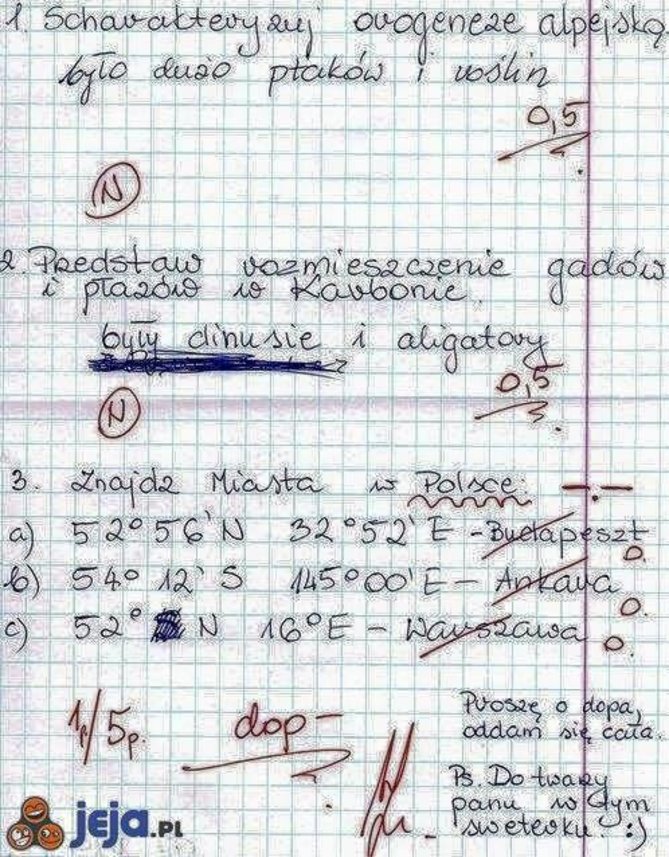 1. Scharakteryzuj orogeneze alpejską.
było dużo ptaków i roślin
0,5
N
2. Przedstaw rozmieszczenie gadów
i płazów w Karbonie.
były dinusie i aligatory
0,5
N
3. Znajdz Miasta w Polsce: -.-
a) 52° 56' N 32° 52' E - Budapeszt
0.
b) 54° 12' S 145° 00' E - Ankara
0.
c) 52° N 16° E - Warszawa
0.
1p/5p. dop -
Proszę o dopa,
oddam się cała.
Ps. Do twarzy
panu w tym
sweterku. :)
jeja.PL